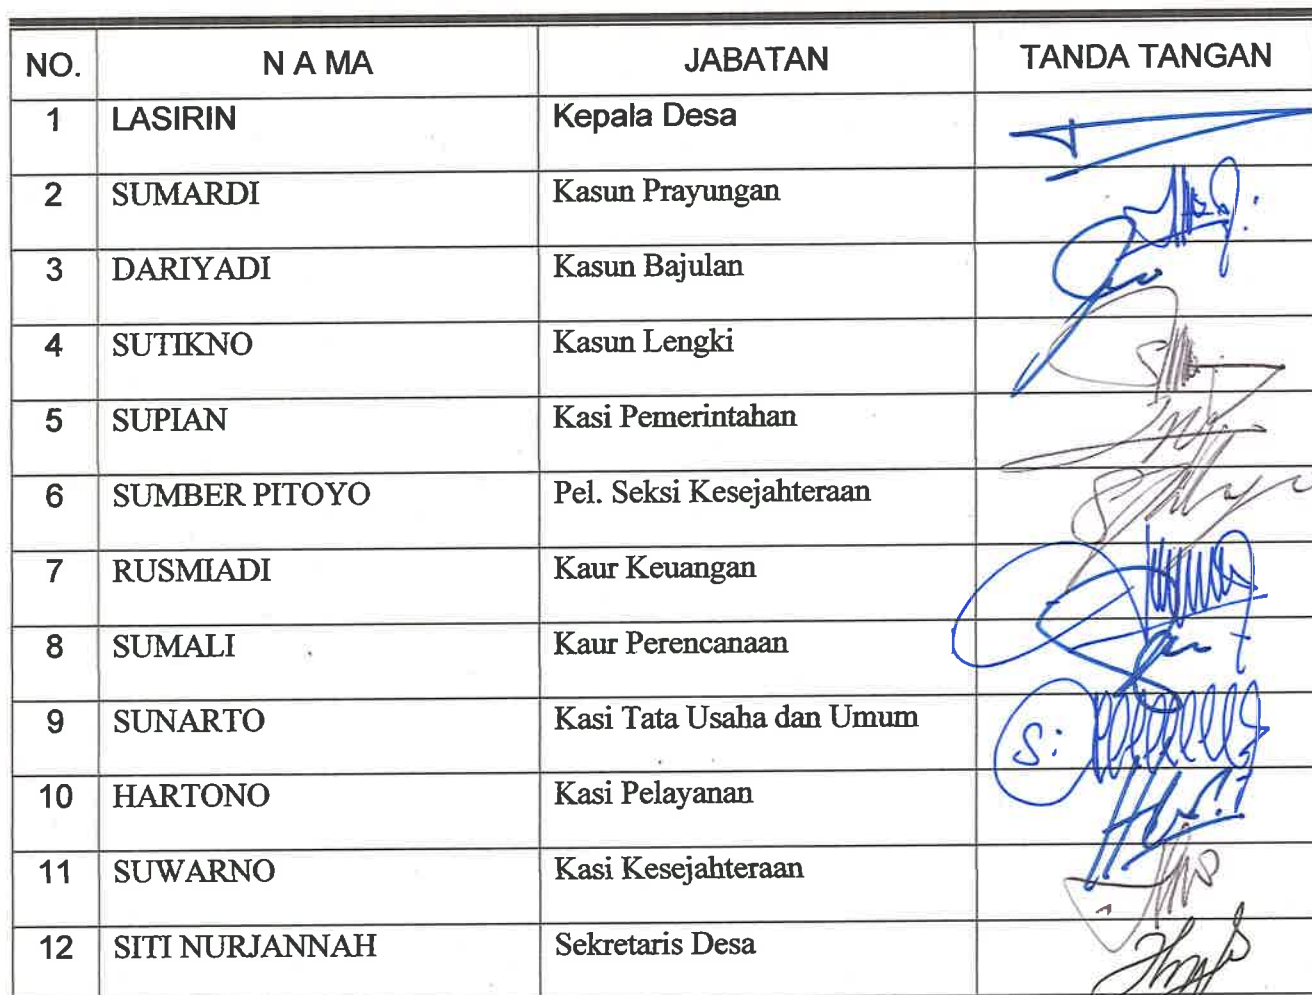 NO. N A MA JABATAN TANDA TANGAN
1 LASIRIN Kepala Desa
2 SUMARDI Kasun Prayungan
3 DARIYADI Kasun Bajulan
4 SUTIKNO Kasun Lengki
5 SUPIAN Kasi Pemerintahan
6 SUMBER PITOYO Pel. Seksi Kesejahteraan
7 RUSMIADI Kaur Keuangan
8 SUMALI Kaur Perencanaan
9 SUNARTO Kasi Tata Usaha dan Umum
10 HARTONO Kasi Pelayanan
11 SUWARNO Kasi Kesejahteraan
12 SITI NURJANNAH Sekretaris Desa